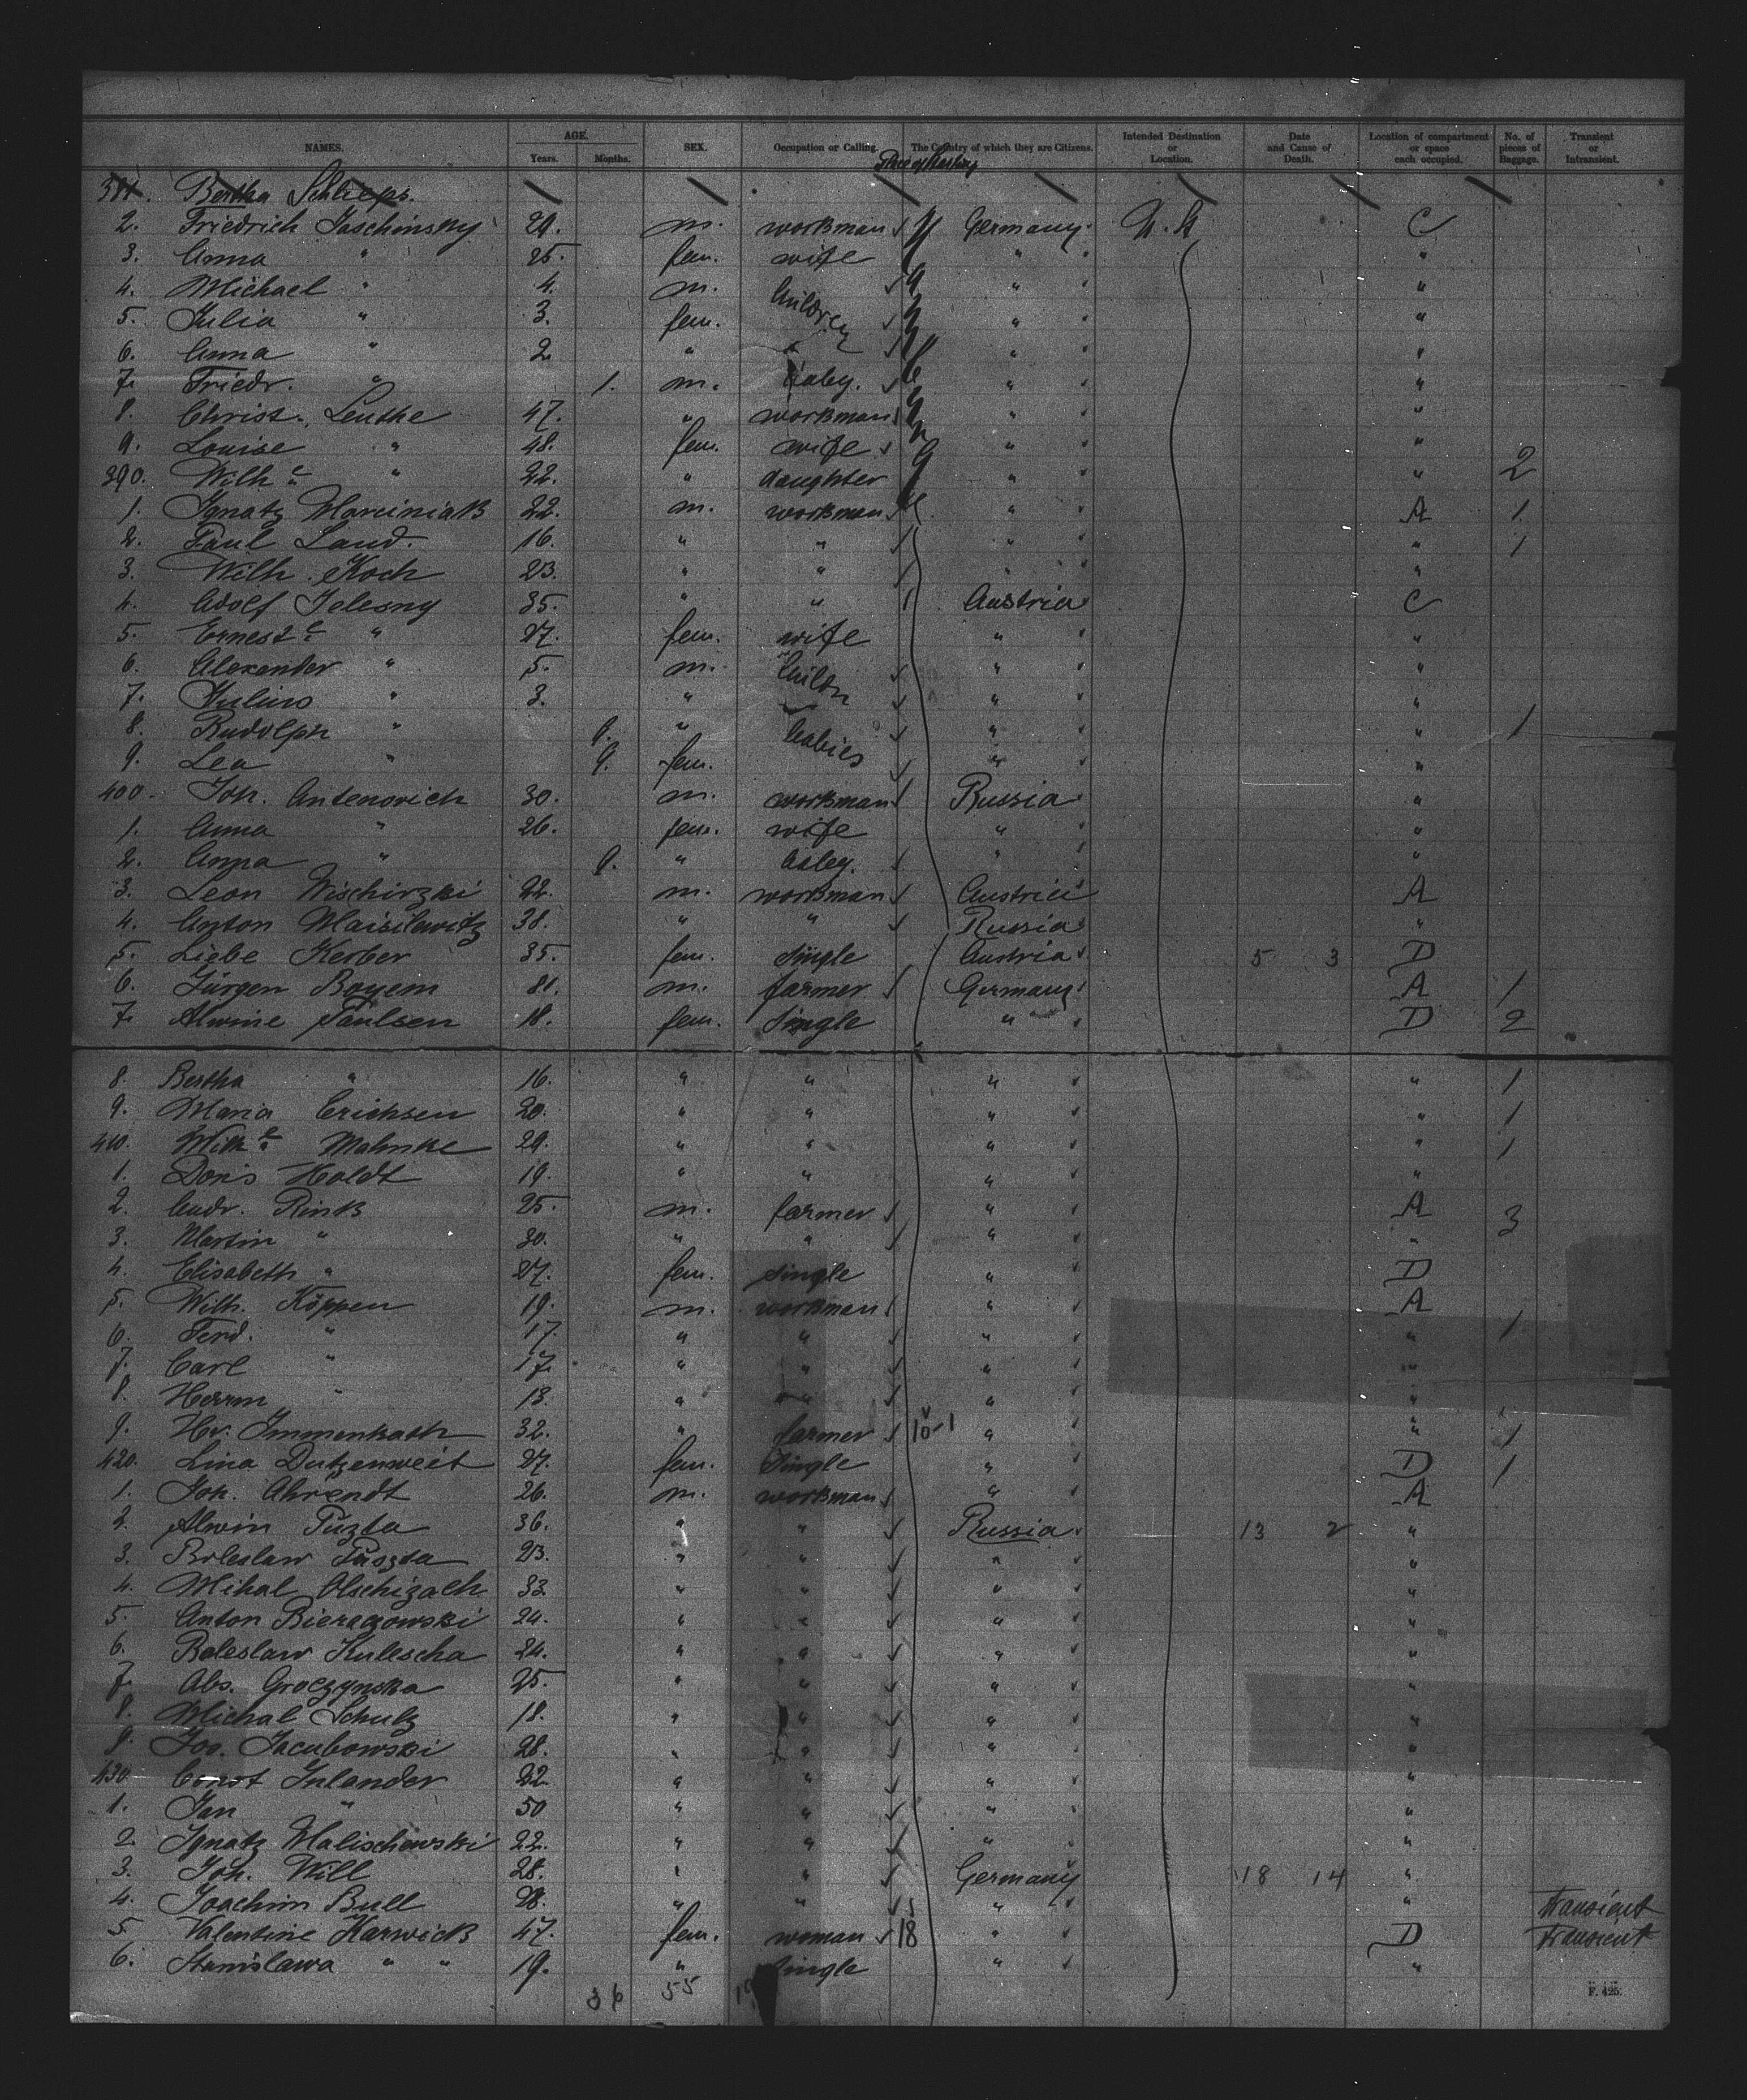 NAMES. AGE. Years. Months. SEX. Occupation or Calling. The Country of which they are Citizens. Intended Destination or Location. Date and Cause of Death. Location of compartment or space each occupied. No. of pieces of Baggage. Transient or Intransient.
381. Bertha Schlieps.
2. Friedrich Jaschinsky 29. m. workman Germany C
3. Anna " 25. fem. wife " "
4. Michael " 4. m. Children " "
5. Julia " 3. fem. " "
6. Anna " 2 " " "
7. Friedr. " 1. m. baby. " "
8. Christ. Leuthe 47. " workman " "
9. Louise " 48. fem. wife " "
390. Wilh.e " 22. " daughter " " 2
1. Ignatz Marciniak 22. m. workman " A 1
2. Paul Land. 16. " " " " 1
3. Wilh. Koch 23. " " " "
4. Adolf Jelesny 35. " " Austria C
5. Ernest.e " 27. fem. wife " "
6. Alexander " 5. m. Childn " "
7. Julius " 3. " " "
8. Rudolph " 9. " babies " " 1
9. Lea " 9. fem. " "
400. Joh. Antenovich 30. m. workman Russia "
1. Anna " 26. fem. wife " "
2. Anna " 9. " baby. " "
3. Leon Wischirzki 22. m. workman Austria A
4. Anton Maisilewitz 38. " " Russia "
5. Liebe Kerber 35. fem. single Austria 5 3 D
6. Jürgen Boyem 81. m. farmer Germany A 1
7. Alwine Paulsen 18. fem. single " D 2
8. Bertha " 16. " " " " 1
9. Maria Erichsen 20. " " " " 1
410. Wilh.e Mahnke 29. " " " " 1
1. Doris Holdt 19. " " " "
2. Andr. Rink 25. m. farmer " A 3
3. Martin " 30. " " " "
4. Elisabeth " 27. fem. single " D
5. Wilh. Köppen 19. m. workman " A
6. Ferd. " 17. " " " " 1
7. Carl " 17. " " " "
8. Herrm " 13. " " " "
9. Hr. Immenkath 32. " farmer 10-1 " " 1
420. Lina Dutzenweit 27. fem. Single " D 1
1. Joh. Ahrendt 26. m. workman " A
2. Alwin Puzta 36. " " Russia 13 2 "
3. Boleslaw Puszta 23. " " " "
4. Mihal Olschizach 33. " " " "
5. Anton Bieragowski 24. " " " "
6. Boleslaw Kulescha 24. " " " "
7. Abs. Groczynska 25. " " " "
8. Michal Schulz 18. " " " "
9. Jos. Jacubowski 28. " " " "
430. Const Inlander 32. " " " "
1. Jan " 50 " " " "
2. Ignatz Malischewski 22. " " " "
3. Joh. Will 28. " " Germany 18 14 "
4. Joachim Bull 28. " " " " Transient
5. Valentine Karwick 47. fem. woman 18 " D Transient
6. Stanislawa " " 19. " single " "
36 55
F. 425.